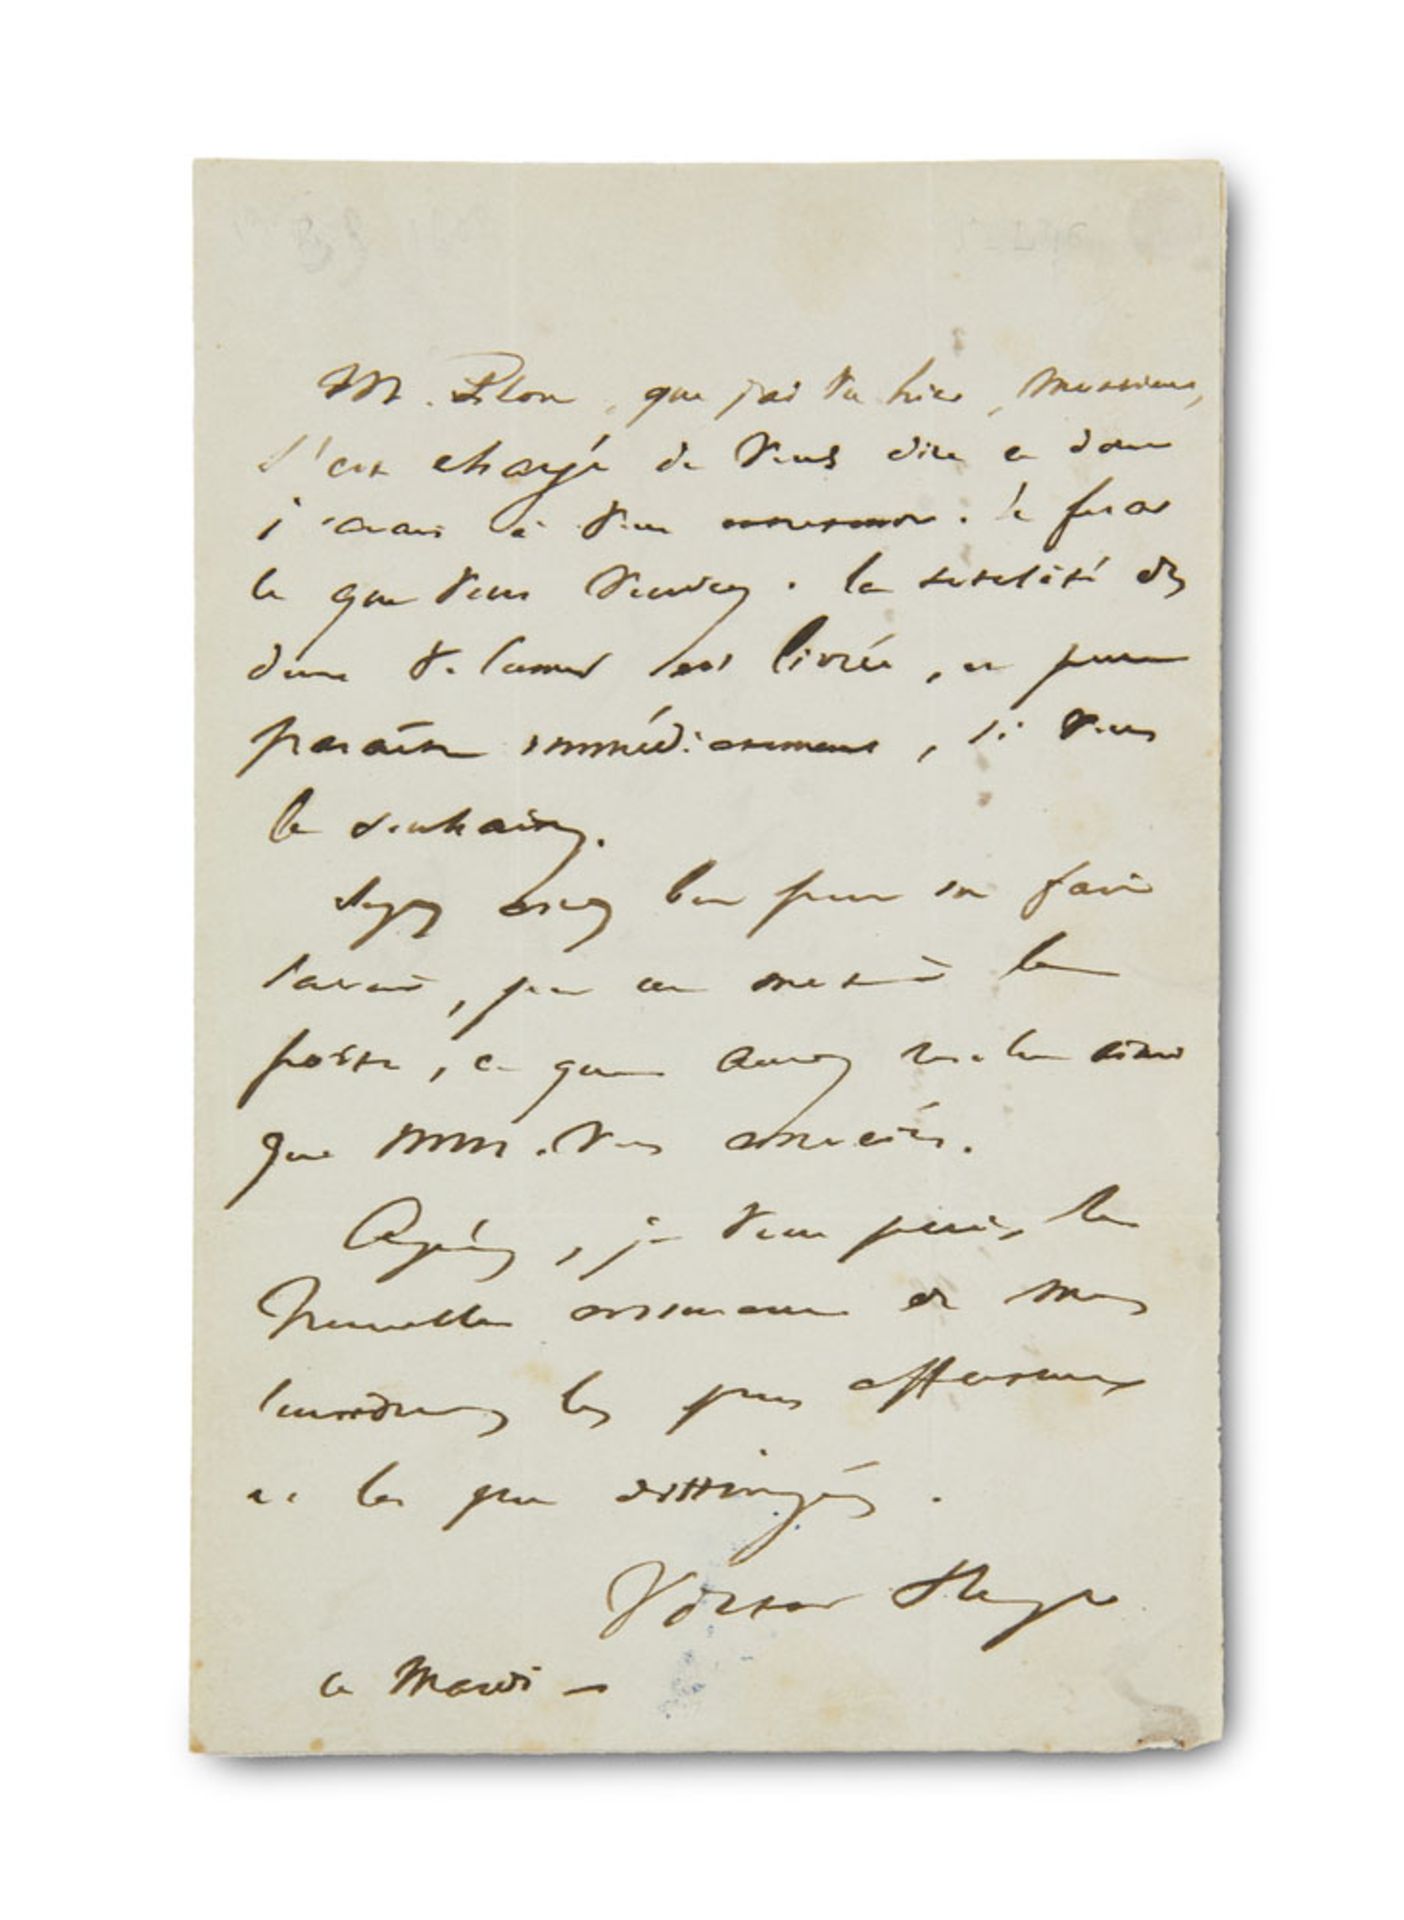 M. Plon, que j'ai vu hier, Monsieur,
s'est chargé de vous dire ce dont
j'avais à vous entretenir. Je ferai
ce que vous voudrez. La totalité des
deux volumes est livrée, et peut
paraître immédiatement, si vous
le souhaitez.
Soyez assez bon pour me faire
savoir, par un mot à la
poste, ce que aurez résolu ainsi
que MM. vos associés.
Agréez, je vous prie, la
nouvelle assurance de mes
sentiments les plus affectueux
et les plus distingués.
Victor Hugo
ce Mardi —